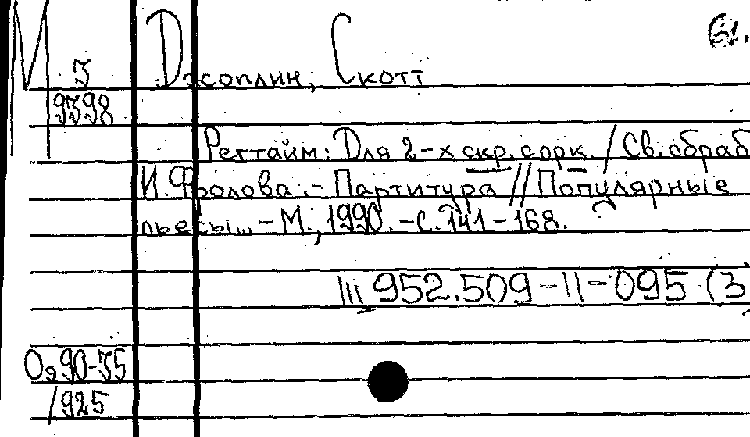 М 3 Джоплин, Скотт
9398
Регтайм: Для 2-х скр. с орк. / Св. обраб
И. Фролова. - Партитура // Популярные
пьесы... - М., 1990. - С. 141-168.
III 952.509-11-095 (3
Оэ90-35
/925